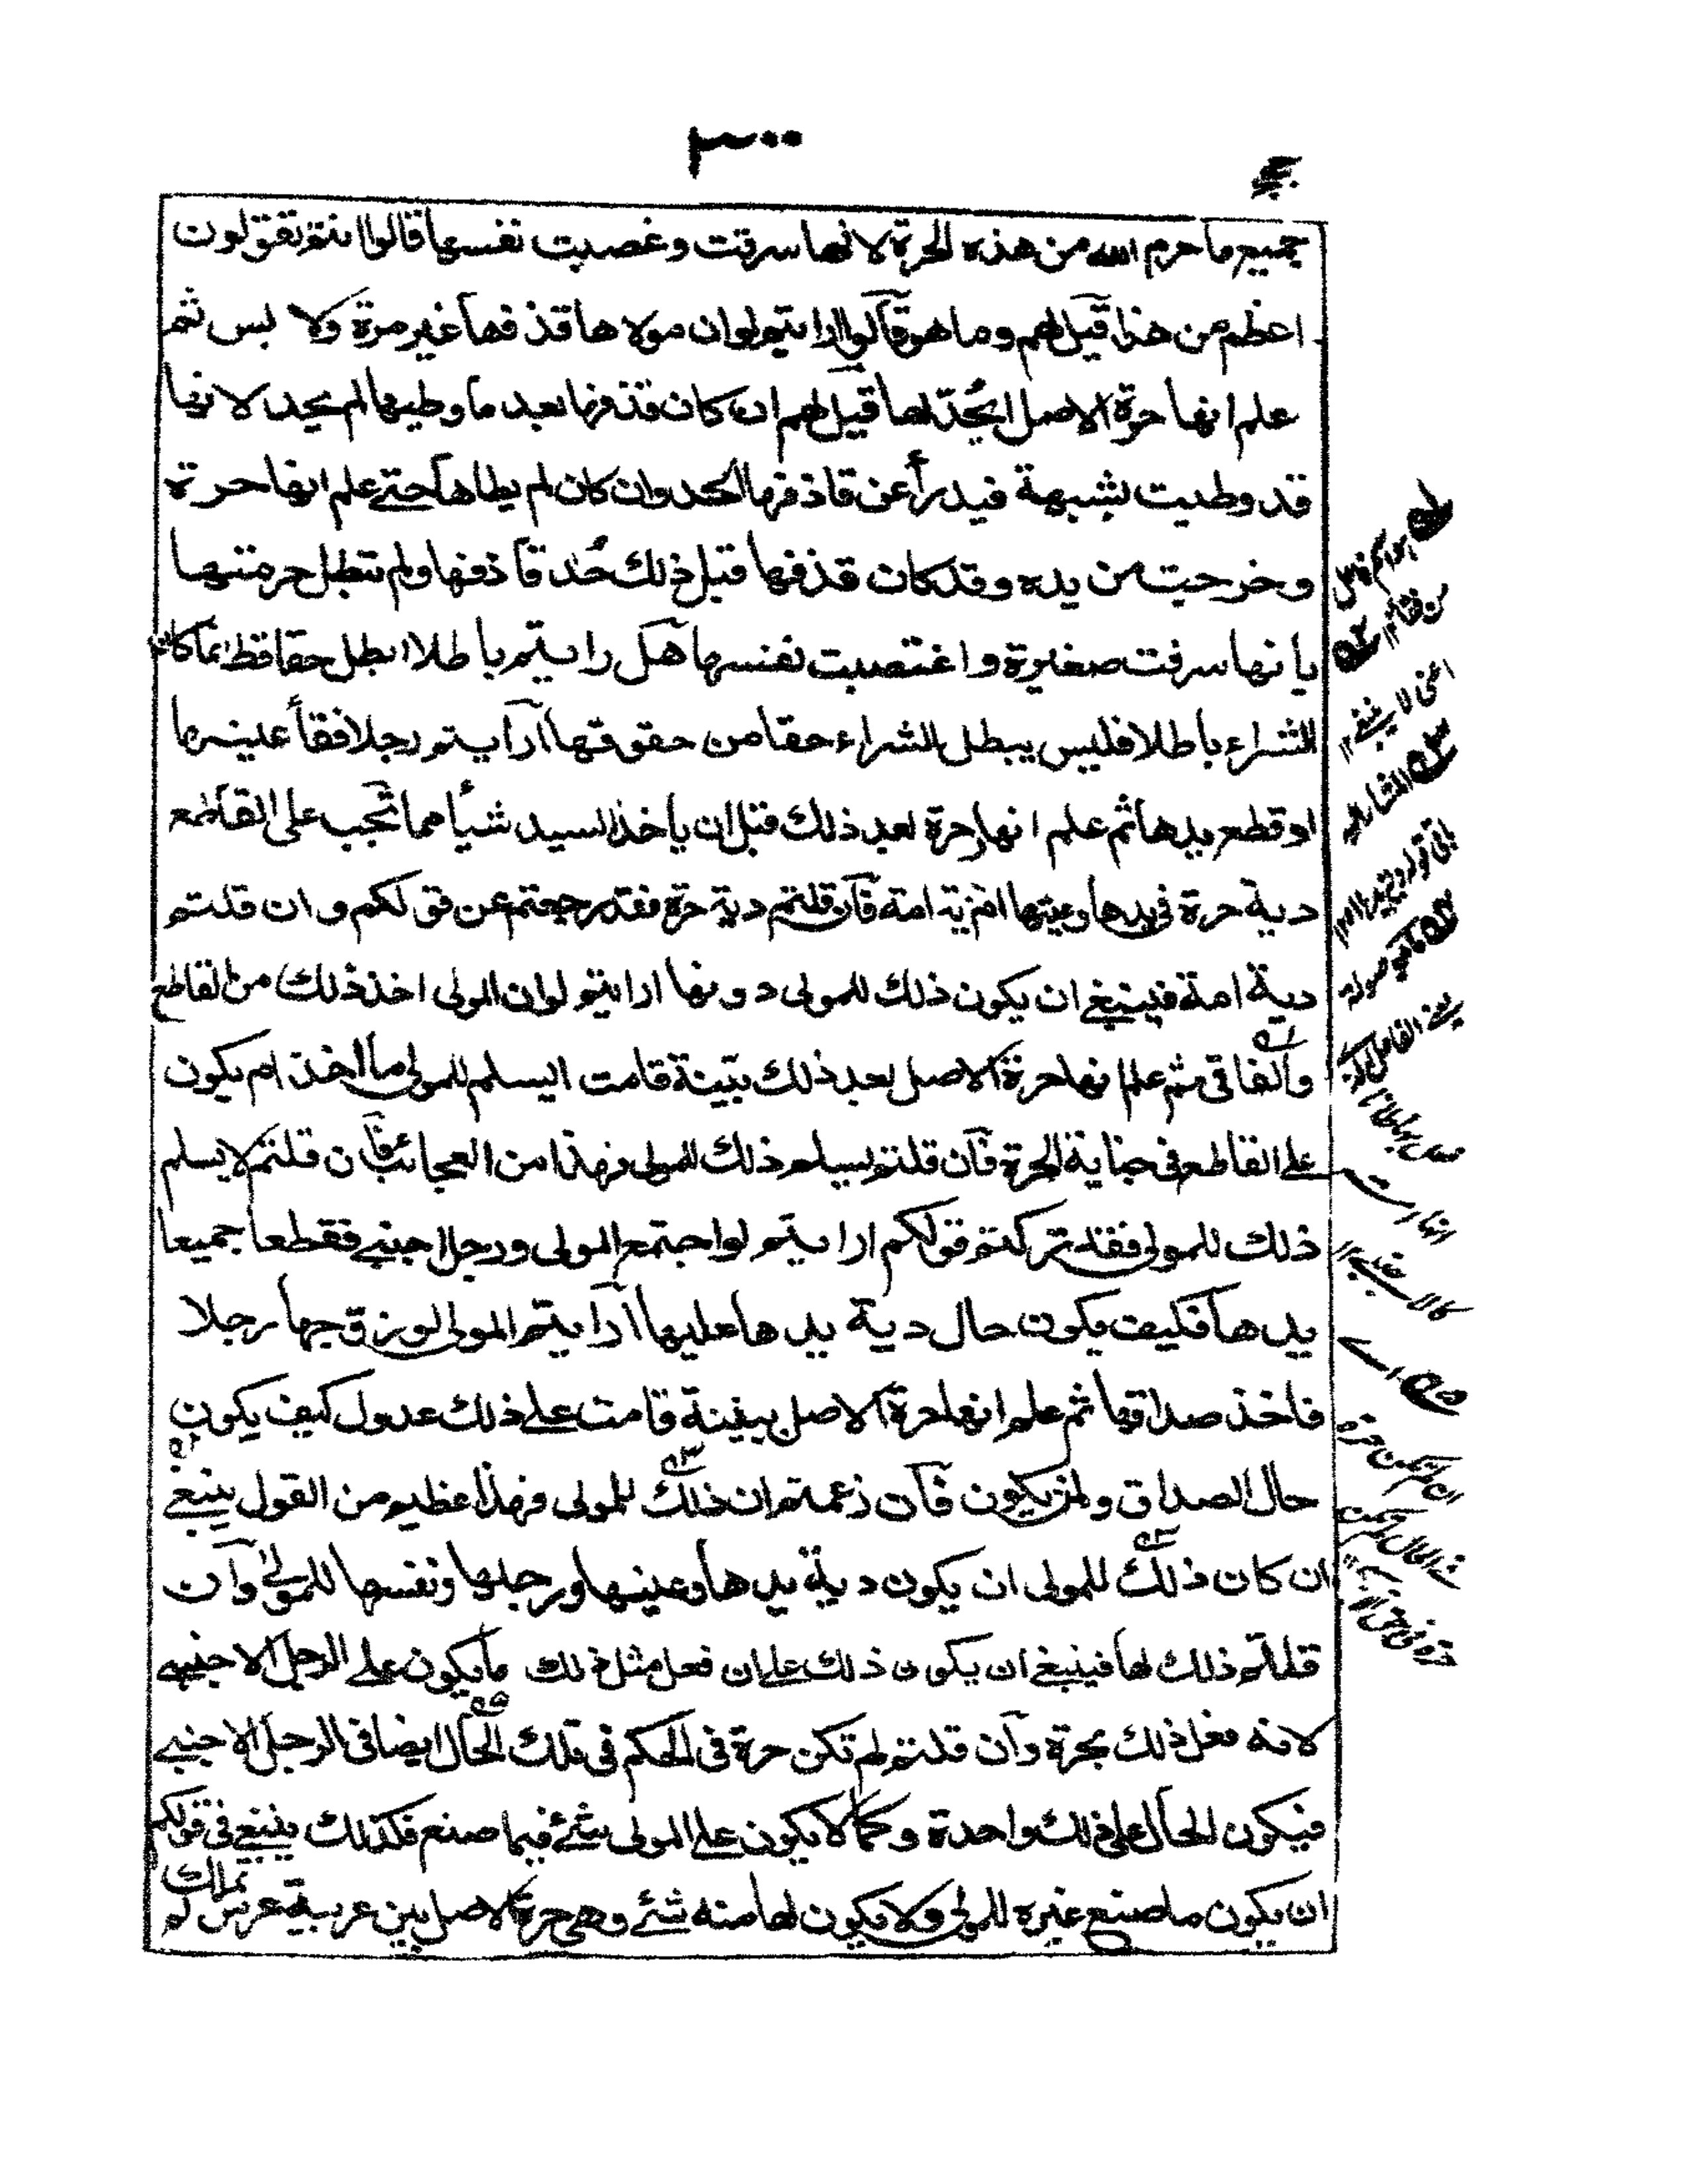 ٣٠٠
جميع ما حرم الله من هذه الحرة لانها سرقت وغصبت نفسها قالوا انتم تقولون
اعظم من هذا قيل لهم وما هو قالوا ارايتم لو ان مولاها قذفها غير مرة ولا بس ثم
علم انها حرة الاصل ايحد لها قيل لهم ان كان قذفها بعد ما وطيها لم يحد لانها
قد وطيت بشبهة فيدرأ عن قاذفها الحد وان كان لم يطاها حتى علم انها حرة
وخرجت من يده وقد كان قذفها قبل ذلك حد قاذفها ولم تبطل حرمتها
بانها سرقت صغيرة واغتصبت نفسها هل رايتم باطلا ابطل حقا قط انما كان
الشراء باطلا فليس يبطل الشراء حقا من حقوقها ارايتم رجلا فقأ عينها
او قطع يدها ثم علم انها حرة بعد ذلك قبل ان يأخذ السيد شيأ مما تجب على القاطع
دية حرة في يدها وعينها ام دية امة فان قلتم دية حرة فقد رجعتم عن قولكم وان قلتم
دية امة فينبغي ان يكون ذلك للمولى دونها ارايتم لو ان المولى اخذ ذلك من القاطع
والفاقي ثم علم انها حرة الاصل بعد ذلك ببينة قامت ايسلم للمولى ما اخذ ام يكون
على القاطع في جناية الحرة فان قلتم يسلم ذلك للمولى فهذا من العجائب فان قلتم لا يسلم
ذلك للمولى فقد تركتم قولكم ارايتم لو اجتمع المولى ورجل اجنبي فقطعا جميعا
يدها فكيف يكون حال دية يدها عليها ارايتم المولى لو زوجها رجلا
فاخذ صداقها ثم علم انها حرة الاصل ببينة قامت على ذلك عدول كيف يكون
حال الصداق ولمن يكون فان زعمتم ان ذلك للمولى فهذا عظيم من القول ينبغي
ان كان ذلك للمولى ان يكون دية يدها وعينها ورجلها ونفسها للمولى وان
قلتم ذلك لها فينبغي ان يكون ذلك على ان فعل مثل ذلك ما يكون على الرجل الاجنبي
لانه فعل ذلك بحرة وان قلتم لم تكن حرة في الحكم في تلك الحال ايضا في الرجل الاجنبي
فيكون الحال على ذلك واحدة وكما لا يكون على المولى شئ فيما صنع فكذلك ينبغي في قولكم
ان يكون ما صنع غيره للمولى ولا يكون لها منه شئ وهي حرة الاصل بين عربية عرس لم
تملك